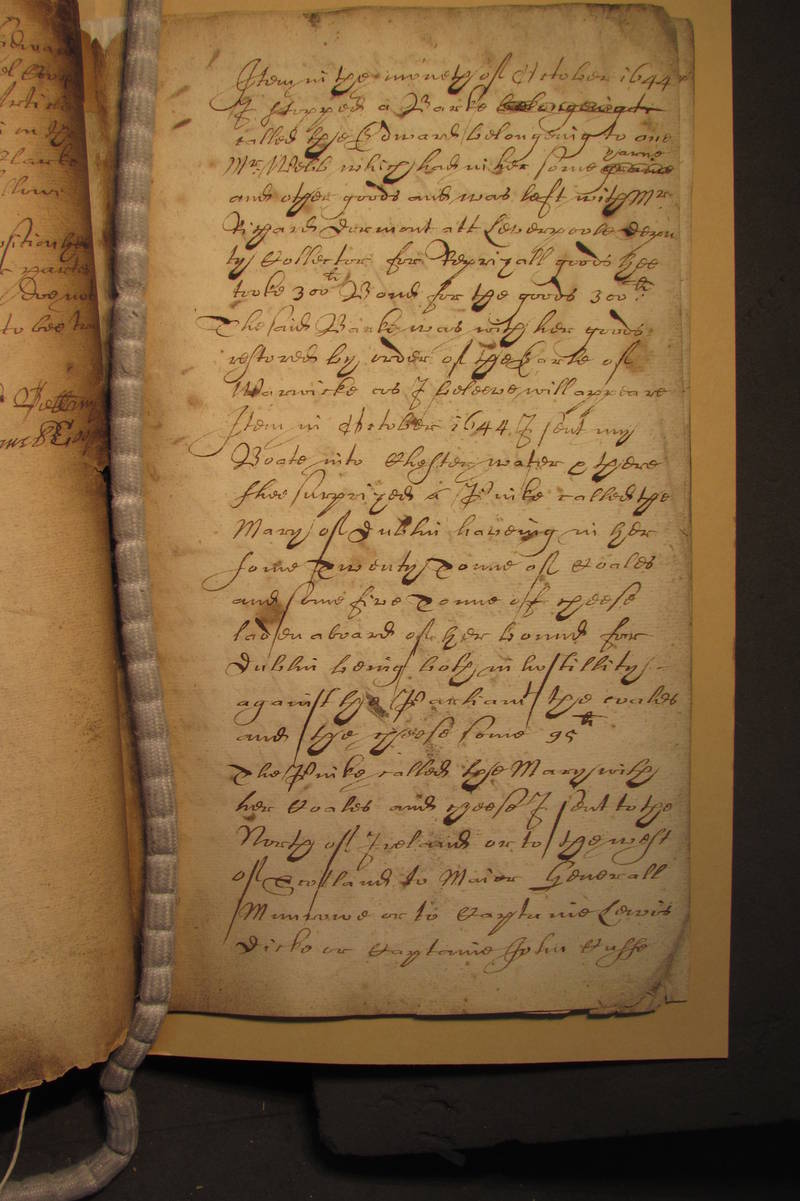 Item in the moneth of October 1644
I stopped a Barke belongeingt
called the Edward belongeing to one
yarne
Mr. Webb which had in her some
and other goods and was left with Mr
Richard Dermont att Leverpoole Depu
ty Collector for Reprizall goods hee
tooke 300li Bond for the goods 300li.
The said Barke was with her goods
restored by order of the Earle of
Warwicke as I beleeve will appeare
Item in October 1644 I sent my
Boate into Chester water & there
shee surprized a Pinke called the
Mary of Dublin haveing in her
some Twenty Tonne of Coales
and some five Tonne of cheese
laden aboard of her bound for
Dublin being both in hostillity
against the Parliamt the coales
and the cheese some 95li
The Pinke called the Mary with
her Coales and cheese I sent to the
North of Ireland or to the west
of Scotland to Maior Generall
Munrowe or to Captaine Lewis
Dicke or Captaine John Cuffe